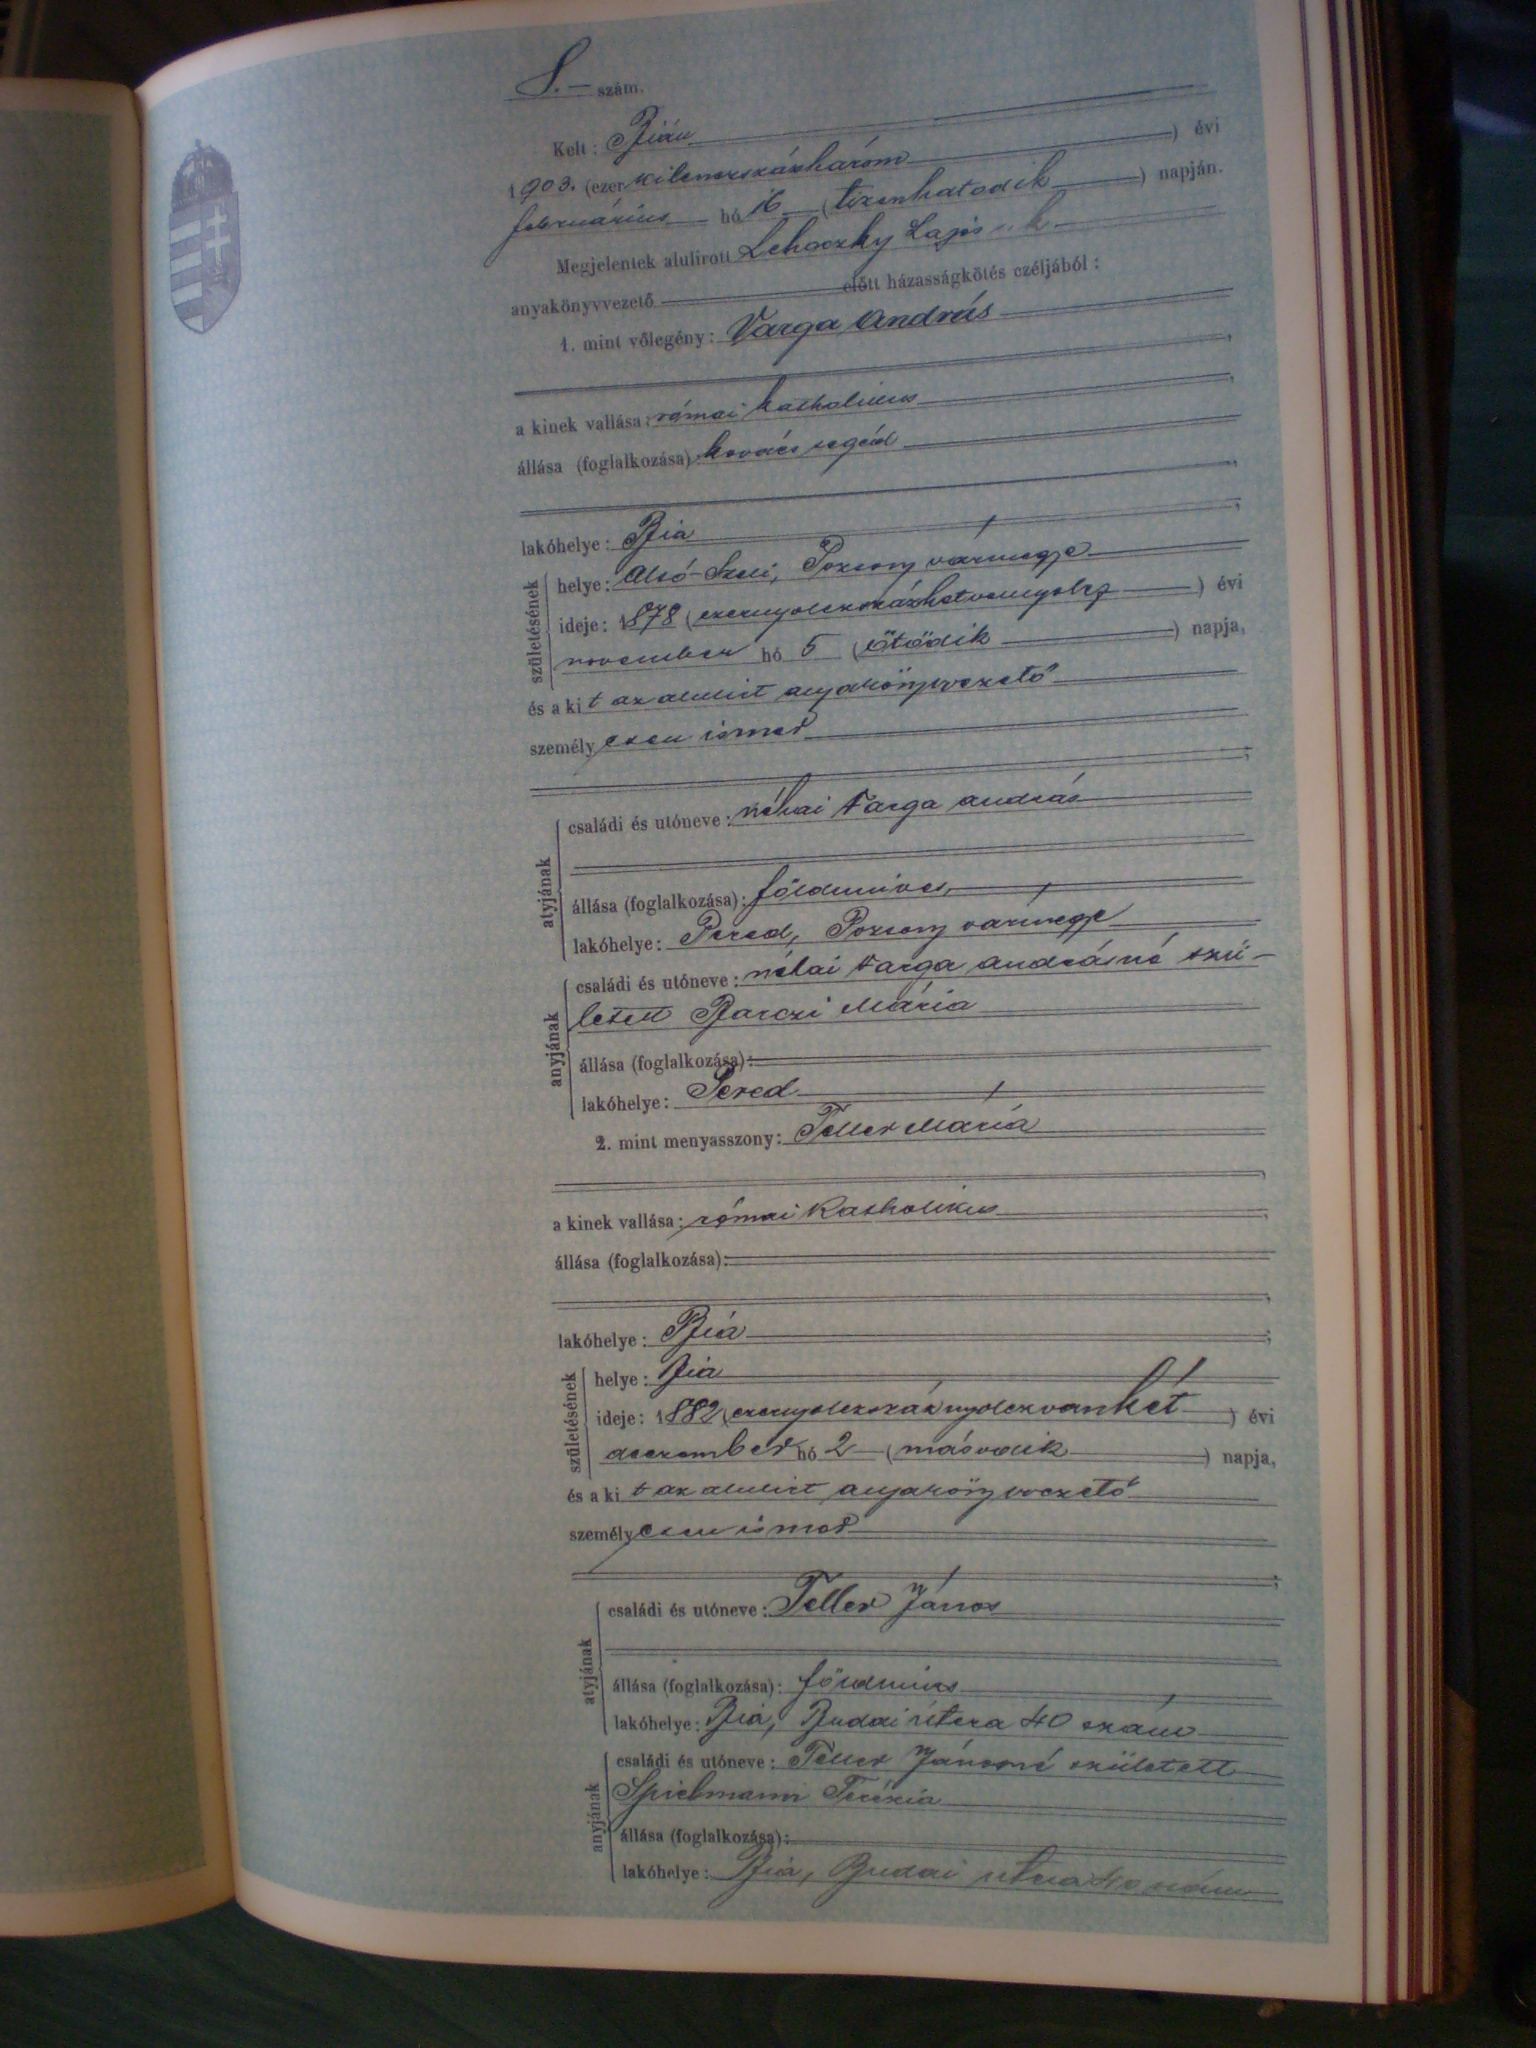 8. — szám.
Kelt: Bián
1903. (ezerkilenczszázhárom) évi
februárius hó 16 (tizenhatodik) napján.
Megjelentek alulirott Lehoczky Lajos
anyakönyvvezető előtt házasságkötés czéljából:
1. mint vőlegény: Varga András
a kinek vallása: római katholikus
állása (foglalkozása) kovács segéd
lakóhelye: Bia
születésének
helye: Alsó-Szeli, Pozsony vármegye
ideje: 1878 (ezernyolczszázhetvennyolcz) évi
november hó 5 (ötödik) napja,
és a kit az alulirt anyakönyvvezető
személyesen ismer
atyjának
családi és utóneve: néhai Varga András
állása (foglalkozása): földmives,
lakóhelye: Pered, Pozsony vármegye
anyjának
családi és utóneve: néhai Varga Andrásné szü-
letett Barczi Mária
állása (foglalkozása):
lakóhelye: Pered
2. mint menyasszony: Teller Mária
a kinek vallása: római katholikus
állása (foglalkozása):
lakóhelye: Bia
születésének
helye: Bia
ideje: 1882 (ezernyolczszáznyolczvankét) évi
deczember hó 2 (második) napja,
és a kit az alulirt anyakönyvvezető
személyesen ismer
atyjának
családi és utóneve: Teller János
állása (foglalkozása): földmives
lakóhelye: Bia, Budai útcza 40 szám
anyjának
családi és utóneve: Teller Jánosné született
Spielmann Terézia
állása (foglalkozása):
lakóhelye: Bia, Budai utcza 40 szám